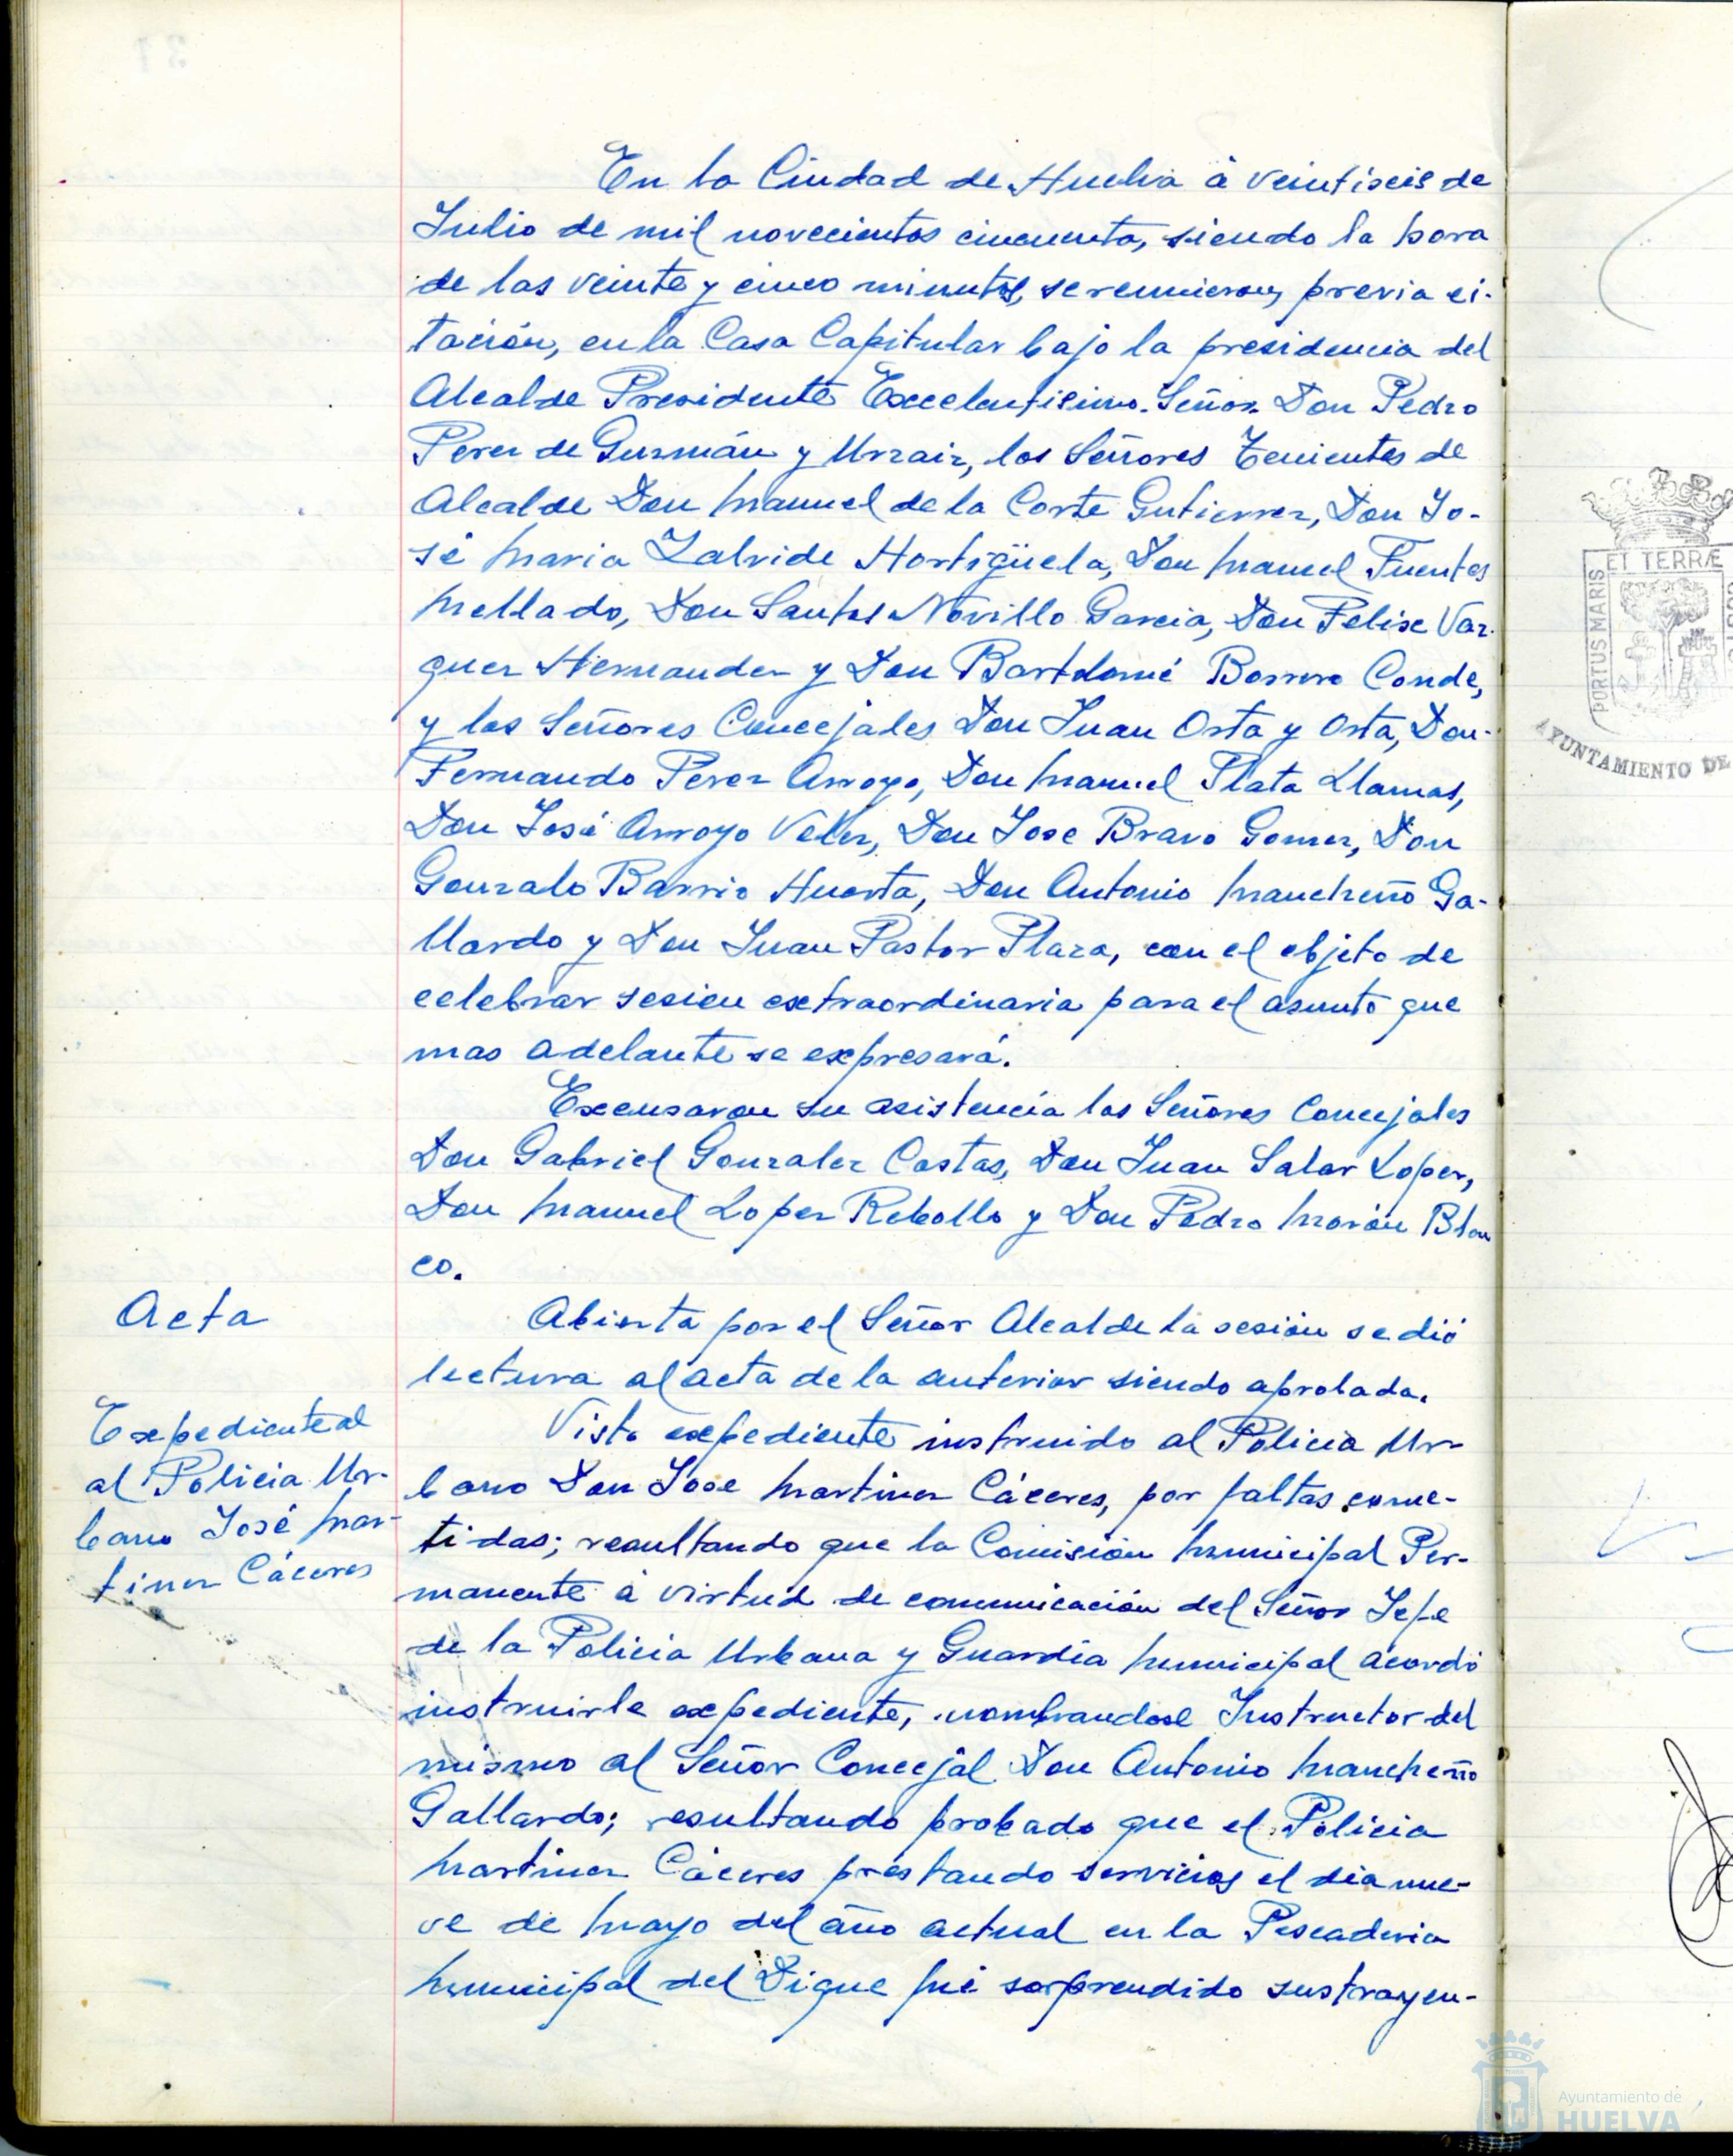 En la Ciudad de Huelva á veintiseis de
Julio de mil novecientos cincuenta, siendo la hora
de las veinte y cinco minutos, se reunieron, previa ci-
tación, en la Casa Capitular bajo la presidencia del
Alcalde Presidente Excelentisimo Señor Don Pedro
Perez de Guzmán y Urzaiz, los Señores Tenientes de
Alcalde Don Manuel de la Corte Gutierrez, Don Jo-
sé Maria Zalvide Hortigüela, Don Manuel Fuentes
Mellado, Don Santos Novillo Garcia, Don Felix Vaz-
quez Hernandez y Don Bartolomé Borrero Conde,
y los Señores Concejales Don Juan Orta y Orta, Don
Fernando Perez Arroyo, Don Manuel Plata Llamas,
Don José Arroyo Velez, Don Jose Bravo Gomez, Don
Gonzalo Barrio Huerta, Don Antonio Mancheño Ga-
llardo y Don Juan Pastor Plaza, con el objeto de
celebrar sesion extraordinaria para el asunto que
mas adelante se expresará.
Excusaron su asistencia los Señores Concejales
Don Gabriel Gonzalez Costas, Don Juan Salar Lopez,
Don Manuel Lopez Rebollo y Don Pedro Morón Blan
co.
Acta
Abierta por el Señor Alcalde la sesión se dió
lectura al acta de la anterior siendo aprobada.
Expediente al
al Policia Ur-
bano José Mar-
tinez Cáceres
Visto expediente instruido al Policia Ur-
bano Don Jose Martinez Cáceres, por faltas come-
tidas; resultando que la Comisión Municipal Per-
manente á virtud de comunicación del Señor Jefe
de la Policia Urbana y Guardia Municipal acordó
instruirle expediente, nombrandose Instructor del
mismo al Señor Concejal Don Antonio Mancheño
Gallardo; resultando probado que el Policia
Martinez Cáceres prestando servicios el dia nue-
ve de Mayo del año actual en la Pescaderia
Municipal del Dique fué sorprendido sustrayen-
PORTUS MARIS
ET TERRÆ
AYUNTAMIENTO DE
Ayuntamiento de
HUELVA